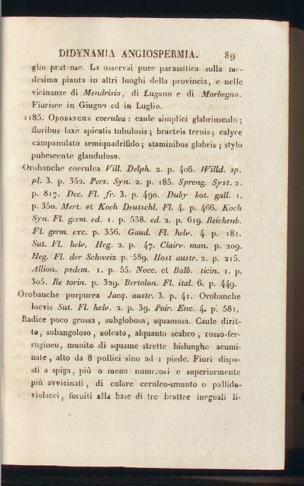 DIDYNAMIA ANGIOSPERMIA. 89
glio pratense. La osservai pure parassitica sulla me-
desima pianta in altri luoghi della provincia, e nelle
vicinanze di Mendrisio, di Lugano e di Morbegno.
Fiorisce in Giugno ed in Luglio.
1185. OROBANCHE coerulea: caule simplici glabriusculo;
floribus laxe spicatis tubulosis; bracteis ternis; calyce
campanulato semiquadrifido; staminibus glabris; stylo
pubescente glanduloso.
Orobanche coerulea Vill. Delph. 2. p. 406. Willd. sp.
pl. 3. p. 352. Pers. Syn. 2. p. 185. Spreng. Syst. 2.
p. 817. Dec. Fl. fr. 3. p. 490. Duby bot. gall. 1.
p. 350. Mert. et Koch Deutschl. Fl. 4. p. 466. Koch
Syn. Fl. germ. ed. 1. p. 538. ed. 2. p. 619. Reichenb.
Fl. germ. exc. p. 356. Gaud. Fl. helv. 4. p. 181.
Sut. Fl. helv. Heg. 2. p. 47. Clairv. man. p. 209.
Heg. Fl. der Schweiz p. 589. Host austr. 2. p. 215.
Allion. pedem. 1. p. 55. Nocc. et Balb. ticin. 1. p.
305. Re torin. p. 329. Bertolon. Fl. ital. 6. p. 449.
Orobanche purpurea Jacq. austr. 3. p. 41. Orobanche
laevis Sut. Fl. helv. 2. p. 39. Poir. Enc. 4. p. 581.
Radice poco grossa, subglobosa, squamosa. Caule dirit-
to, subangoloso, solcato, alquanto scabro, rosso-fer-
rugineo, munito di squame strette bislunghe acumi-
nate, alto da 8 pollici sino ad 1 piede. Fiori dispo-
sti a spiga, più o meno numerosi e superiormente
più avvicinati, di colore ceruleo-smunto o pallido-
violacei, forniti alla base di tre brattee ineguali li-